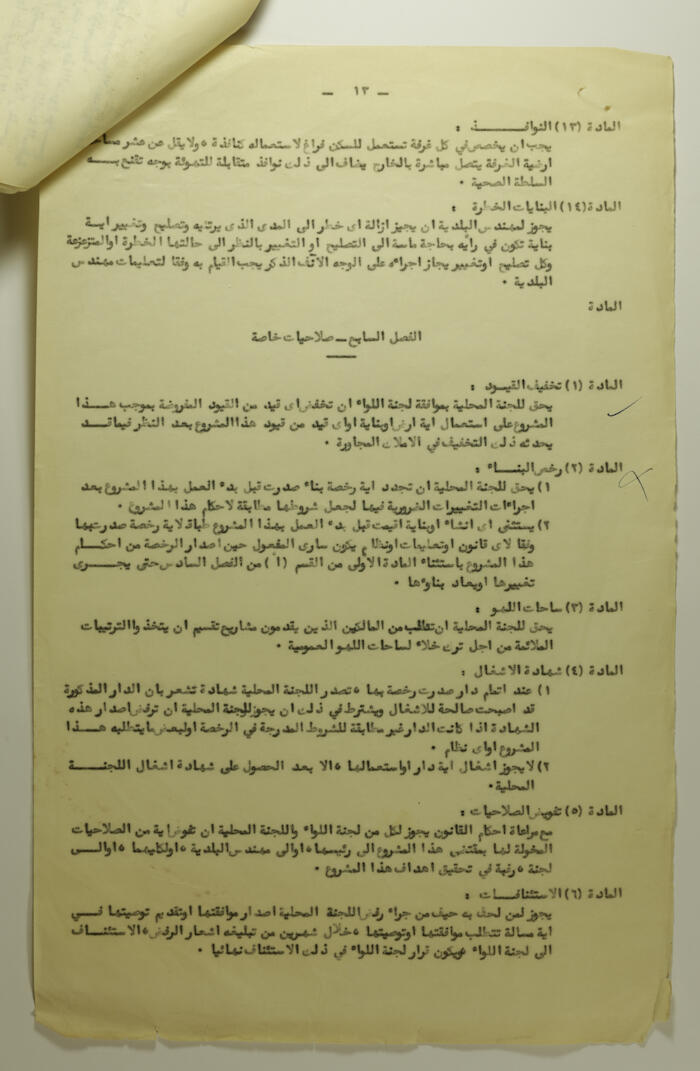 — ١٣ —
المادة (١٣) النوافــــــذ :
يجب ان يخصص في كل غرفة تستعمل للسكن فراغ لاستعماله كنافذة ٠ ولا يقل عن عشر
ارضية الغرفة يتصل مباشرة بالخارج يضاف الى ذلك نوافذ متقابلة للتهوئة بوجه تقنع بــه
السلطة الصحية ٠
المادة (١٤) البنايات الخطرة :
يجوز لمهندس البلدية ان يجيز ازالة اى خطر الى المدى الذى يرتايه وتصليح وتغيير ايــة
بناية تكون في رأيه بحاجة ماسة الى التصليح او التغيير بالنظر الى حالتها الخطرة اوالمتزعزعة
وكل تصليح اوتغيير يجاز اجراءه على الوجه الآنف الذكر يجب القيام به وفقا لتعليمات مهندس
البلدية ٠
المادة
الفصل السابع ــ صلاحيات خاصة
المادة (١) تخفيف القيــود :
يحق للجنة المحلية بموافقة لجنة اللواء ان تخفض اى قيد من القيود المفروضة بموجب هـــذا
المشروع على استعمال اية ارض اوبناية اواى قيد من قيود هذا المشروع بعد النظر فيما قــد
يحدثه ذلك التخفيف في الاملاك المجاورة ٠
المادة (٢) رخص البنــاء :
١) يحق للجنة المحلية ان تجدد اية رخصة بناء صدرت قبل بدء العمل بهذا المشروع بعد
اجراءات التغييرات الضرورية فيها لجعل شروطها مطابقة لاحكام هذا المشروع ٠
٢) يستثنى اى انشاء اوبناية اقيمت قبل بدء العمل بهذا المشروع طباقا لاية رخصة صدرت بها
وفقا لاى قانون اوتعليمات اونظام يكون سارى المفعول حين اصدار الرخصة من احكــام
هذا المشروع باستثناء المادة الأولى من القسم (أ) من الفصل السادس حتى يجـــرى
تغييرها اويعاد بناوءها ٠
المادة (٣) ساحات اللهو :
يحق للجنة المحلية ان تطلب من المالكين الذين يقدمون مشاريع تقسيم ان يتخذوا الترتيبات
الملائمة من اجل ترك خلاء لساحات اللهو العمومية ٠
المادة (٤) شهادة الاشغال :
١) عند اتمام دار صدرت رخصة بها ٠ تصدر اللجنة المحلية شهادة تشعر بان الدار المذكورة
قد اصبحت صالحة للاشغال ويشترط في ذلك ان يجوز للجنة المحلية ان ترفض اصدار هذه
الشهادة اذا كانت الدار غير مطابقة للشروط المدرجة في الرخصة اولبعض ما يتطلبه هـــذا
المشروع اواى نظام ٠
٢) لايجوز اشغال اية دار اواستعمالها ٠ الا بعد الحصول على شهادة اشغال اللجنـــة
المحلية ٠
المادة (٥) تفويض الصلاحيات :
مع مراعاة احكام القانون يجوز لكل من لجنة اللواء واللجنة المحلية ان تفوض اية من الصلاحيات
المخولة لها بمقتضى هذا المشروع الى رئيسها ٠ اوالى مهندس البلدية ٠ اولكليهما ٠ اوالــى
لجنة ٠ رغبة في تحقيق اهداف هذا المشروع ٠
المادة (٦) الاستئنافــات :
يجوز لمن لحق به حيف من جراء رفض اللجنة المحلية اصدار موافقتها اوتقديم توصيتها فـــي
اية مسالة تتطلب موافقتها اوتوصيتها ٠ خلال شهرين من تبليغه اشعار الرفض ٠ الاستئنــاف
الى لجنة اللواء ٠ ويكون قرار لجنة اللواء في ذلك الاستئناف نهائيا ٠